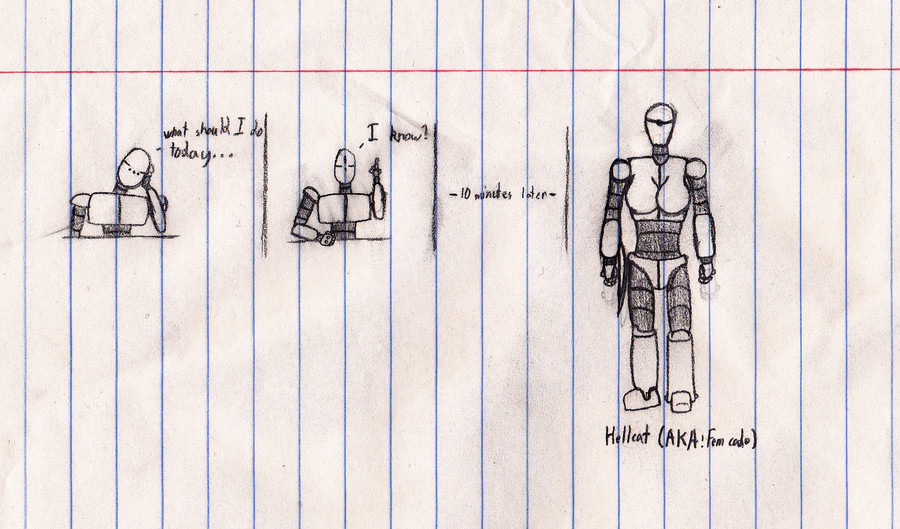 what should I do
today...
I know!
-10 minutes later-
Hellcat (AKA: Fem cade)